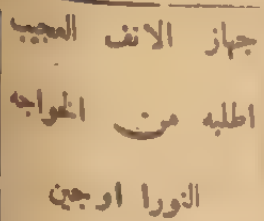 جهاز الانف العجيب
اطلبه من الخواجه
النورا اوجين